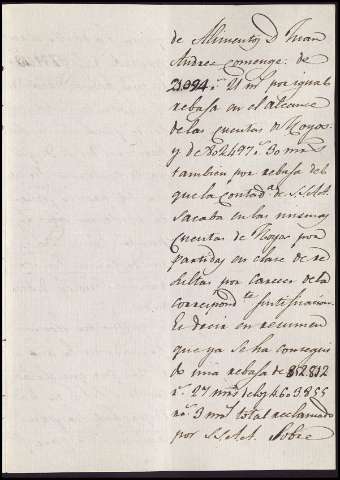 de Alimentos D. Juan
Andres Comenge: de
21094 r.s 21 m.s por igual
rebaja en el alcance
de las cuentas de Hoyos:
y de 802497 r.s 30 mrs
tambien por rebaja del
que la contad.a de S.S.A.A.
sacaba en las mismas
cuentas de Hoyos por
partidas en clase de re
sultas por carecer de la
correspond.te justificacion.
Es decir en resumen
que ya se ha consegui
do una rebaja de 852812
r.s 27 mrs de los 4.603855
r.s 3 mrs total reclamado
por S.S.A.A. Sobre